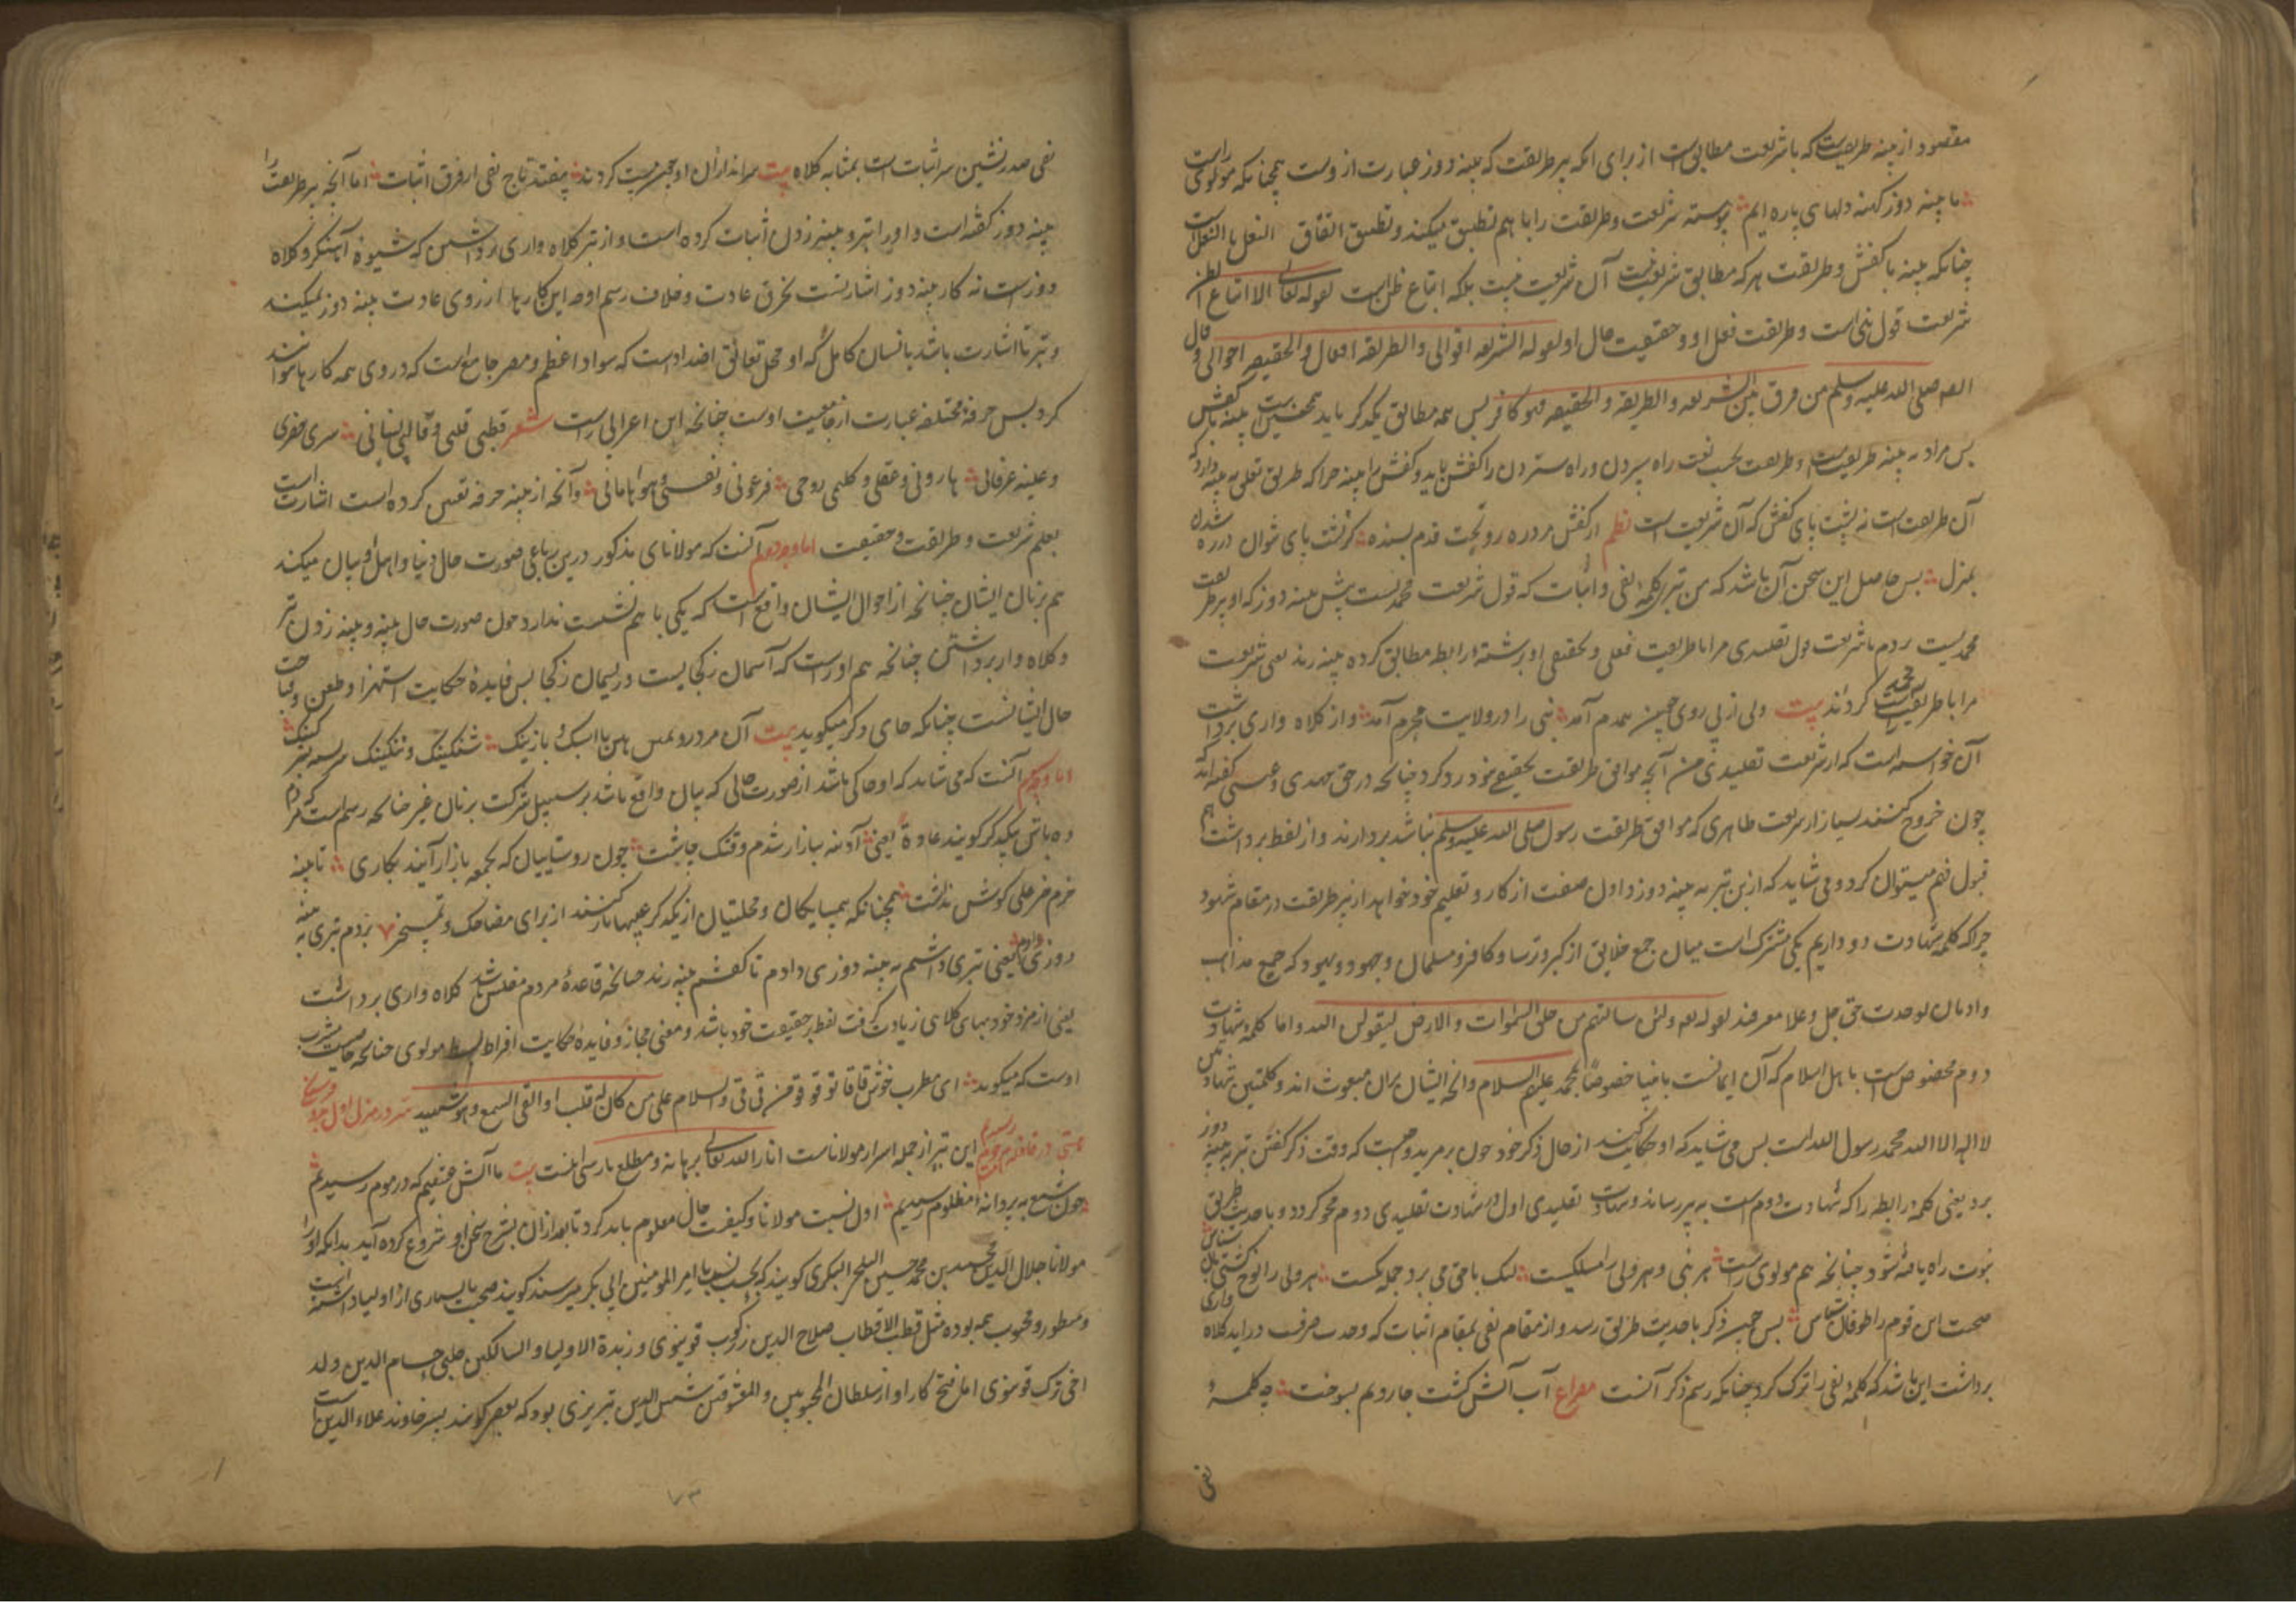 مقصود از پینه طریقیست که با شریعت مطابق است از برای آنکه پیر طریقت که پینه دوز عبارت از وست همچنانکه مولوی راست
ما پینه دوز کهنه دلهای پاره ایم پیوسته شریعت و طریقت را با هم تطبیق میکند و تطبیق اتفاق النعل بالنعل است
چنانکه پینه با کفش و طریقت هر که مطابق شریعت نیست آن شریعت نیست بلکه اتباع ظن است لقوله تعالی الا اتباع الظن
شریعت قول نبی است و طریقت فعل او و حقیقت حال او لقوله الشریعه اقوالی والطریقه افعالی والحقیقه احوالی و قال
صلی الله علیه وسلم من فرق بین الشریعه والطریقه والحقیقه فهو کافر پس همه مطابق یکدگر باید همچنین است پینه با کفش
پس مراد به پینه طریقیست و طریقت بحسب لغت راه سپردن و راه ستردن را کفش باید و کفش را پینه چرا که طریق تعلق به پینه دارد که
آن طریقت است نه پشت پای کفش که آن شریعت است نظم
بمنزل پس حاصل این سخن آن باشد که من تبر کلمه نفی و اثبات که قول شریعت محمدیست پیش پینه دوز که او پیر طریقت
محمدیست بردم تا شریعت قول تقلیدی مرا با طریقت فعلی و تحقیقی او برشته رابطه مطابق کرده پینه زند یعنی شریعت
مرا با طریقت محمدی گرداند بیت ولی از پی روی چون همدم آمد نبی را در ولایت محرم آمد و از کلاه واری برداشت
آن خواسته است که از شریعت تقلیدی من آنچه موافق طریقت تحقیقی نبود رد کرد چنانچه در حق مهدی و عیسی گفته اند که
چون خروج کنند بسیار از شریعت ظاهری که موافق طریقت رسول صلی الله علیه وسلم نباشد بردارند و از لفظ برداشت هم
قبول فهم میتوان کرد و می شاید که ازین تبر به پینه دوز داول صنعت از کار و تعلیم خود خواهد از پیر طریقت در مقام شهود
چراکه کلمه شهادت دو داریم یکی مشترک است میان جمع خلایق از گبر و ترسا و کافر و مسلمان و جهود و یهود که جمیع مذاهب
و ادیان بوحدت حق جل و علا معرفند لقوله تعه ولئن سالتهم من خلق السموات والارض لیقولن الله و اما کلمه شهادت
دوم مخصوص است با اهل اسلام که آن ایمانست بانبیا خصوصا بمحمد علیهم السلام وانچه ایشان بران مبعوث اند و کلمتین شهادتین
لا اله الا الله محمد رسول الله است پس می شاید که او حکایت کند از حال ذکر خود چون بر مرید واجبست که وقت ذکر کفش تبر به پینه دوز
برد یعنی کلمه رابطه را که شهادت دوم است به پیر رساند و شهادت تقلیدی اول در شهادت تقلیدی دوم محو گردد و باحدیت طریق
نبوت راه یافته شود چنانچه هم مولوی راست هر نبی و هر ولی را مسلکیست لیک با حق می برد جمله یکیست هر ولی را نوح کشتی بان شناس
صحبت این قوم را طوفان شناس پس چون ذکر باحدیت طریق رسد و از مقام نفی بمقام اثبات که وحدت صرفست در آید کلاه واری
برداشت این باشد که کلمه نفی را ترک کرد چنانکه رسم ذکر آنست مصراع آب آتش گشت جاروبم بسوخت چه کلمه
نفی
نفی صدرنشین سر اثبات است بمثابه کلاه بیت سراندازان او چون جیب کردند بیفتد تاج نفی از فرق اثبات اما آنچه پیر طریقت را
پینه دوز گفته است و او را تبر و پینه زدن اثبات کرده است و از تبر کلاه واری برداشتن که شیوه آهنگر و کلاه
دوز است نه کار پینه دوز اشارتست بخرق عادت و خلاف رسم او چه این کارها از روی عادت پینه دوز نمیکند
و تبر تا اشارت باشد بانسان کامل که او محل تعانق اضداد است که سواد اعظم و مصر جامع است که در وی همه کارها توانند
کرد پس حرفه مختلفه عبارت از جامعیت اوست چنانچه ابن اعرابی راست شعر قطبی قلبی وقالبی لبنانی سری خضری
وعینه عرفانی هارونی وعقلی وکلیمی روحی فرعونی ونفسی وهوا هامانی و آنچه از پینه حرفه تعیین کرده است اشارتست
بعلم شریعت و طریقت و حقیقت اما وجه دوم آنست که مولانای مذکور درین رباعی صورت حال دنیا و اهل او بیان میکند
هم بزبان ایشان چنانچه از احوال ایشان واقع است که یکی با هم نسبت ندارد چون صورت حال پینه و پینه زدن تبر
و کلاه وار برداشتن چنانچه هم اوراست که آسمان ز کجایست و ریسمان ز کجا پس فایده حکایت استهزا و طعن وقباحت
حال ایشانست چنانکه جای دگر میگوید بیت
اما وجه سیوم آنست که می شاید که او حاکی باشد از صورت حالی که بیان واقع باشد بر سبیل شرکت بزبان غیر چنانچه رسم است که مردم
ده باتن یکدگر گویند عادة یعنی آدینه ببازار شدم وقتک چاشت چون روستاییان که بجمعه بازار آیند بکاری تا پینه
خرم خر علی گوش نداشت همچنانکه
دوزی دادم یعنی تبری داشتم به پینه دوزی دادم تا کفشم پینه زند چنانچه قاعده مردم مفلس باشد کلاه واری برداشت
یعنی از مزد خود بهای کلاهی زیادت گرفت لفظ بر حقیقت خود باشد و معنی مجاز و فایده حکایت افراط بسط مولوی چنانچه خاصیت مشرب
اوست که میگوید ای مطرب خوش قاقا تو قوقو من قی قی والسلام علی من کان له قلب او القی السمع وهو شهید
این تبر از جمله اسرار مولاناست انار الله تعالی برهانه و مطلع پارسی اینست بیت ما آتش عشقیم که در موم رسیدیم
چون شمع به پروانه مظلوم رسیدیم اول نسبت مولانا و کیفیت حال معلوم باید کرد تا بعد ازان بشرح سخن او شروع کرده آید بدانکه او را
مولانا جلال الدین محمد بن محمد بن حسین البلخی البکری گویند که بحسب نسب با امیر المومنین ابی بکر میرسند گویند صحبت بسیاری از اولیا داشته است
و منظور و محبوب همه بوده مثل قطب الاقطاب صلاح الدین زرکوب قونیوی و زبدة الاولیا والسالکین چلبی حسام الدین ولد
اخی ترک قونیوی اما فتح کار او از سلطان المحبوبین والمعشوقین شمس الدین تبریزی بود که بعضی گویند پسر خاوند علاء الدین است
۷۳